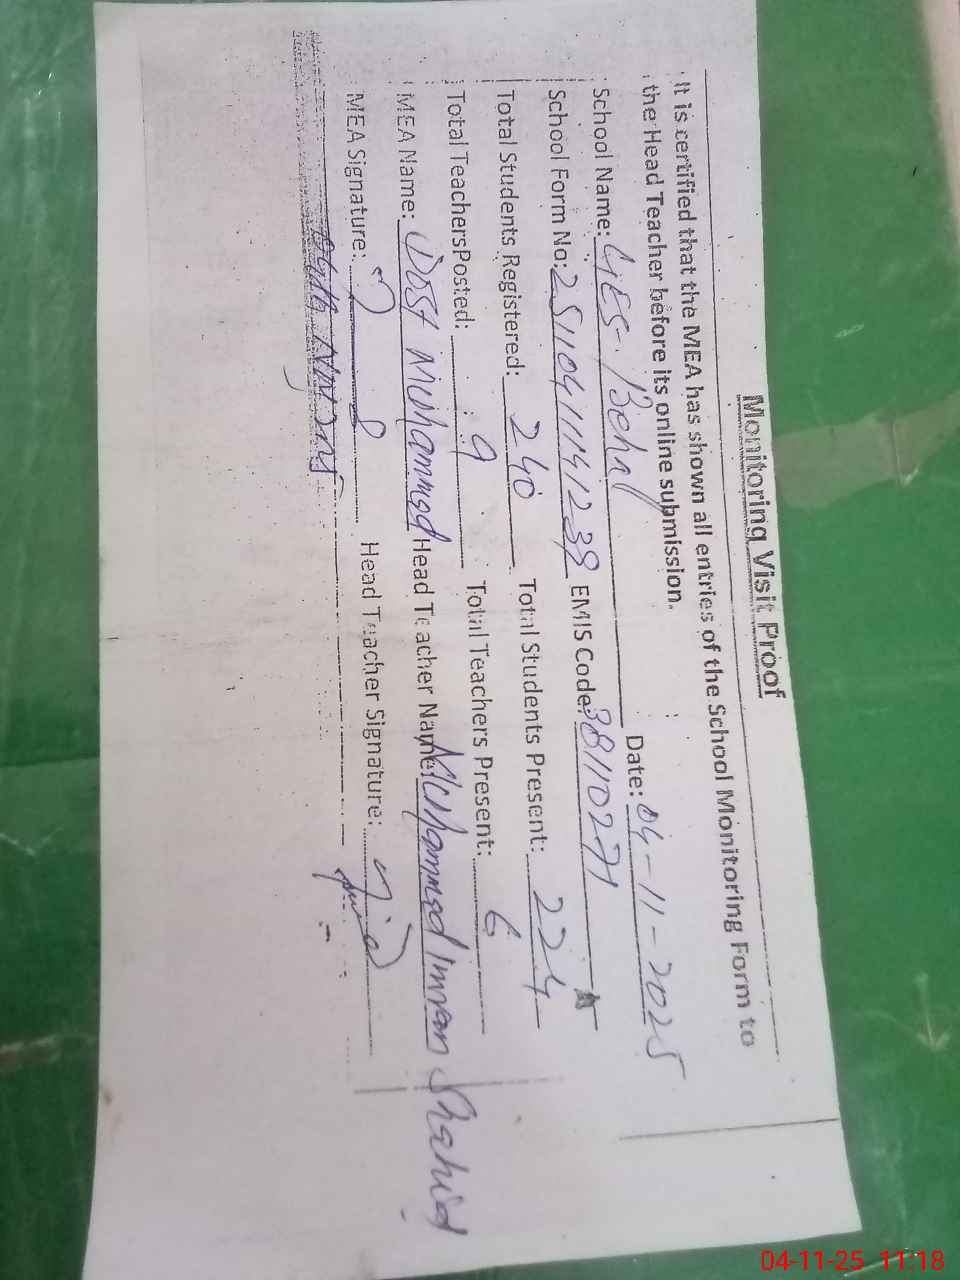 Monitoring Visit Proof
It is certified that the MEA has shown all entries of the School Monitoring Form to
the Head Teacher before its online submission.
School Name: GES. Behal Date: 04-11-2025
School Form No: EMIS Code: 38110271
Total Students Registered: 240 Total Students Present: 224
Total TeachersPosted: 9 Total Teachers Present: 6
MEA Name: Dost Muhammad Head Teacher Name: Muhammad Imran Shahid
MEA Signature: Head Teacher Signature:
04-11-25 11:18